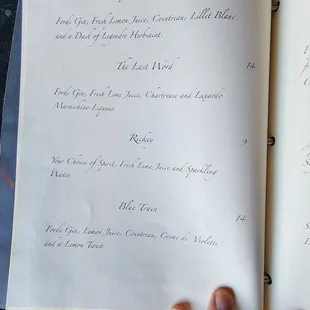 Fords Gin, Fresh Lemon Juice, Cointreau, Lillet Blanc
and a Dash of Legendre Herbsaint.
The Last Word 14
Fords Gin, Fresh Lime Juice, Chartreuse and Luxardo
Maraschino Liqueur.
Rickey 9
Your Choice of Spirit, Fresh Lime Juice and Sparkling
Water
Blue Train 14
Fords Gin, Lemon Juice, Cointreau, Crème de Violette,
and a Lemon Twist.